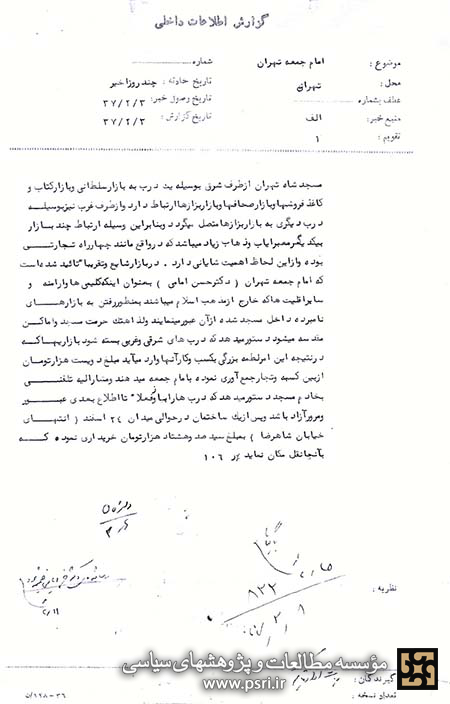 گزارش اطلاعات داخلی
موضوع : امام جمعه تهران شماره
محل : تهران تاریخ حادثه : چند روز اخیر
عطف بشماره تاریخ وصول خبر : ۳۷/۲/۳
منبع خبر : الف تاریخ گزارش : ۳۷/۲/۳
تقویم : ۱
مسجد شاه تهران از طرف شرق بوسیله یک درب به بازار سلطانی و بازار کتاب و
کاغذ فروشها و بازار صحافها و بازار بزازها ارتباط دارد و از طرف غرب نیز بوسیله
درب دیگری به بازار بزازها متصل میگردد و بنابراین وسیله ارتباط چند بازار
بیکدیگر معبر ایاب و ذهاب زیاد میباشد که در واقع مانند چهار راه تجارتی
بوده و از این لحاظ اهمیت شایانی دارد . در بازار شایع و تقریبا" تائید شده است
که امام جمعه تهران ( دکتر حسن امامی ) بعنوان اینکه کلیمی ها و ارامنه و
سایر اقلیت ها که خارج از مذهب اسلام میباشند بمنظور رفتن به بازار های
نامبرده داخل مسجد شده از آن عبور مینمایند ولذا هتک حرمت مسجد و اماکن
مقدسه میشود دستور میدهد که درب های شرقی و غربی بسته شود بازاریها که
در نتیجه این امر لطمه بزرگی بکسب و کار آنها وارد میآید مبلغ دویست هزار تومان
از بین کسبه و تجار جمع آوری نموده با امام جمعه میدهند و مشارالیه تلفنی
بخادم مسجد دستور میدهد که درب ها را باز و فعلا" تا اطلاع بعدی عبور
و مرور آزاد باشد و پس از یک ساختمان در حوالی میدان ۲۴ اسفند ( انتهای
خیابان شاهرضا ) بمبلغ سیصد و هشتاد هزار تومان خریداری نموده که
بآنجا نقل مکان نماید ۱۰۶
نظریه :
۸۲۲
گیرندگان :
تعداد نسخه :
مؤسسه مطالعات و پژوهشهای سیاسی
www.psri.ir